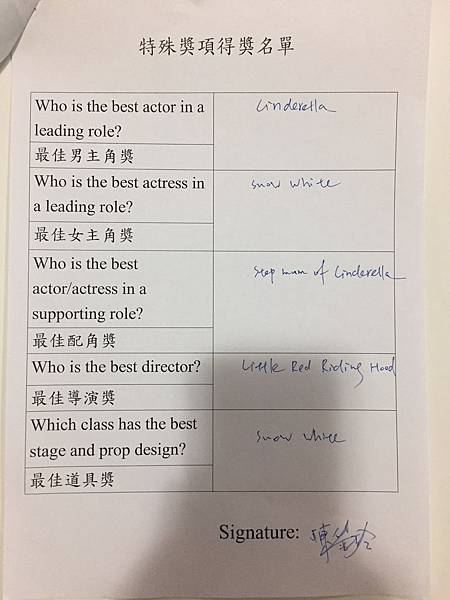 特殊獎項得獎名單
Who is the best actor in a
leading role?
Cinderella
最佳男主角獎
Who is the best actress in
a leading role?
snow white
最佳女主角獎
Who is the best
actor/actress in a
supporting role?
step mum of Cinderella
最佳配角獎
Who is the best director?
Little Red Riding Hood
最佳導演獎
Which class has the best
stage and prop design?
snow white
最佳道具獎
Signature: